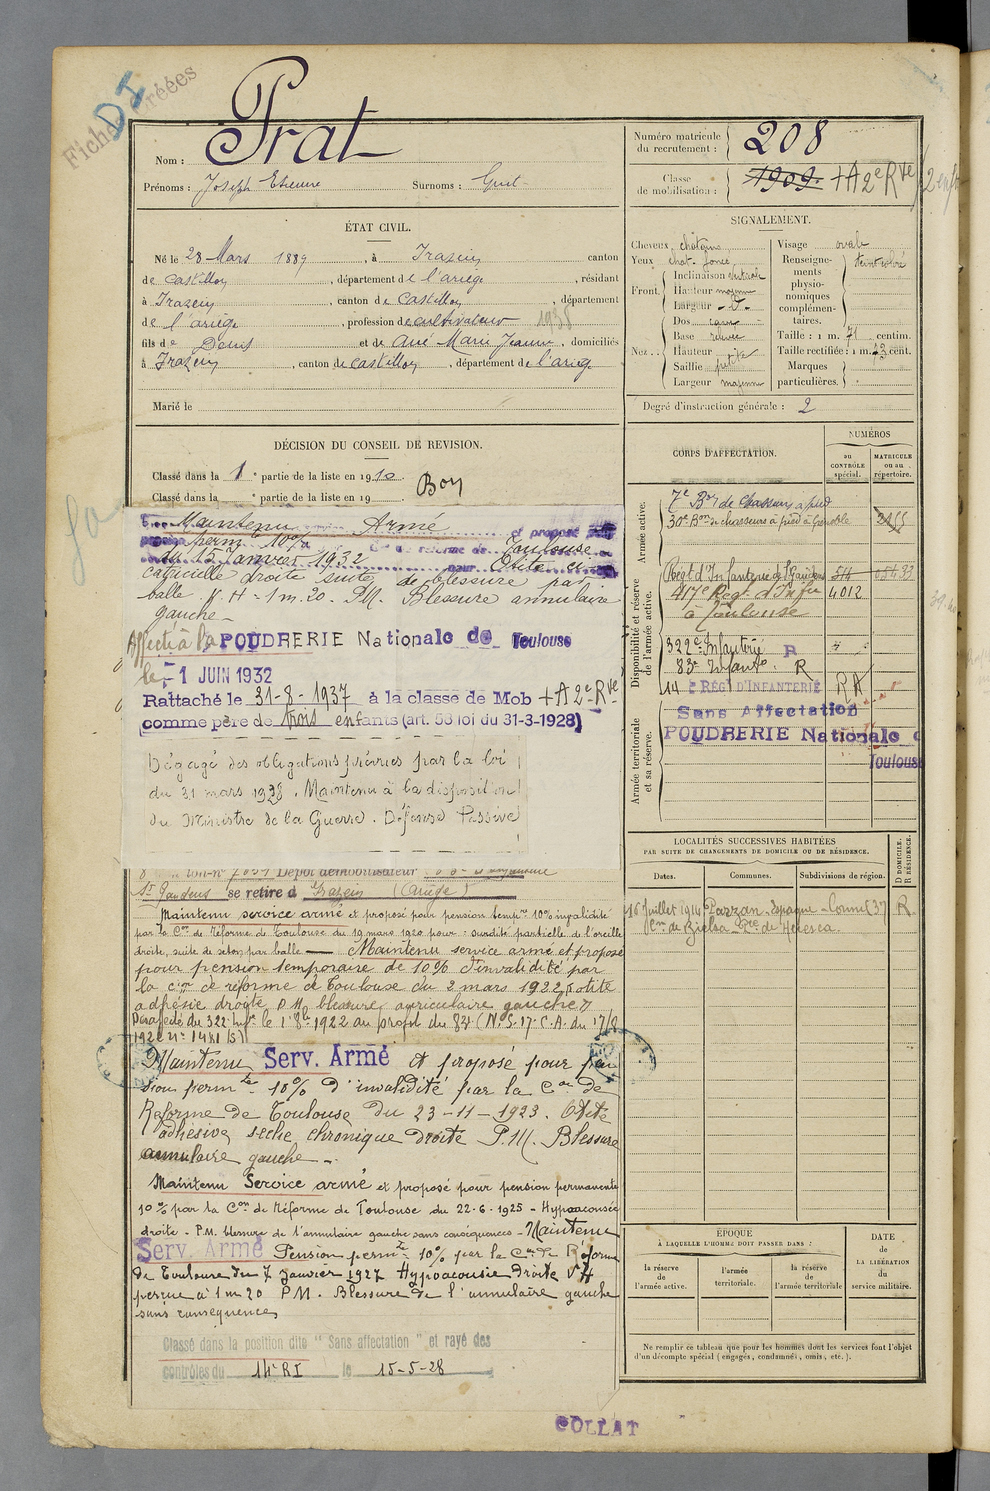 Fiches créées
DI
Nom : Prat
Prénoms : Joseph Etienne Surnoms :
Numéro matricule du recrutement : 208
Classe de mobilisation : 1909. + A 2e Rve
ÉTAT CIVIL.
Né le 28 Mars 1889, à Irazein canton
de Castillon, département de l'ariège, résidant
à Irazein, canton de Castillon, département
de l'ariège, profession de cultivateur 1938
fils de Denis et de Ané Marie Jeanne, domiciliés
à Irazein, canton de Castillon, département de l'arièg
Marié le
SIGNALEMENT.
Cheveux châtains
Yeux chat. foncé
Front. Inclinaison verticale
Hauteur moyenne
Largeur - d° -
Nez... Dos cave
Base relevée
Hauteur
Saillie petite
Largeur moyenne
Visage ovale
Renseignements physionomiques complémentaires. teint coloré
Taille : 1 m. 71 centim.
Taille rectifiée : 1 m. 73 cent.
Marques particulières.
Degré d'instruction générale : 2
DÉCISION DU CONSEIL DE REVISION.
Classé dans la 1 e partie de la liste en 1910
Classé dans la e partie de la liste en 19
Bon
Maintenu Armé et proposé
perm 10% de réforme de Toulouse
du 15 Janvier 1932 pour Otite
droite suite de blessure par
balle V.H = 1 m. 20. P.M. Blessure annulaire
gauche -
Affecté à la POUDRERIE Nationale de Toulouse
le - 1 JUIN 1932
Rattaché le 31-8-1937 à la classe de Mob + A 2e Rve
comme père de trois enfants (art. 58 loi du 31-3-1928)
Dégagé des obligations prévues par la loi
du 31 mars 1928. Maintenu à la disposition
du Ministre de la Guerre. Défense Passive
Dépôt démobilisateur
St Gaudens se retire à Irazein (Ariège)
Maintenu service armé et proposé pour pension tempre 10% invalidité
par la Con de Réforme de Toulouse du 19 mars 1920 pour : surdité partielle de l'oreille
droite, suite de séton par balle — Maintenu service armé et proposé
pour pension temporaire de 10% d'invalidité par
la Con de réforme de Toulouse du 2 mars 1922 "otite
adhésive droite P.M. blessure auriculaire gauche"
Passé du 322 Inf. le 1 8bre 1922 au profit du 83e (N.S. 17 C.A. du 17/8
1922 n° 1481/S)
Maintenu Serv. Armé et proposé pour pen
sion permte 10% d'invalidité par la Con de
Réforme de Toulouse du 23-11-1923. Otite
adhésive sèche chronique droite P.M. Blessure
annulaire gauche -
Maintenu Service armé et proposé pour pension permanente
10% par la Con de Réforme de Toulouse du 22-6-1925 - Hypoacousie
droite - P.M. blessure de l'annulaire gauche sans conséquences - Maintenu
Serv. Armé Pension permte 10% par la Con de Réforme
de Toulouse du 7 Janvier 1927 Hypoacousie droite V H
perçue à 1 m 20 P.M. Blessure de l'annulaire gauche
sans conséquences
Classé dans la position dite "Sans affectation" et rayé des
contrôles du 14e RI le 15-5-28
CORPS D'AFFECTATION.
NUMÉROS
au CONTRÔLE spécial.
MATRICULE ou au répertoire.
Armée active.
7e Bon de Chasseurs à pied
30e Bon de chasseurs à pied à Grenoble 2155
Disponibilité et réserve de l'armée active.
Regt d'Infanterie de St Gaudens 514 05433
417e Reg. d'Infie 4012
à Toulouse
322e Infanterie R
83e Infanto R
14 e RÉGt D'INFANTERIE RA
Armée territoriale et sa réserve.
Sans Affectation
POUDRERIE Nationale d
Toulouse
LOCALITÉS SUCCESSIVES HABITÉES
PAR SUITE DE CHANGEMENTS DE DOMICILE OU DE RÉSIDENCE.
Dates.
Communes.
Subdivisions de région.
D DOMICILE. R RÉSIDENCE.
16 Juillet 1914 Parzan - Espagne - Comne 37 R
Con de Bielsa - Pce de Huesca.
ÉPOQUE
À LAQUELLE L'HOMME DOIT PASSER DANS :
la réserve de l'armée active.
l'armée territoriale.
la réserve de l'armée territoriale
DATE de LA LIBÉRATION du service militaire.
Ne remplir ce tableau que pour les hommes dont les services font l'objet
d'un décompte spécial (engagés, condamnés, omis, etc.).
COLLAT